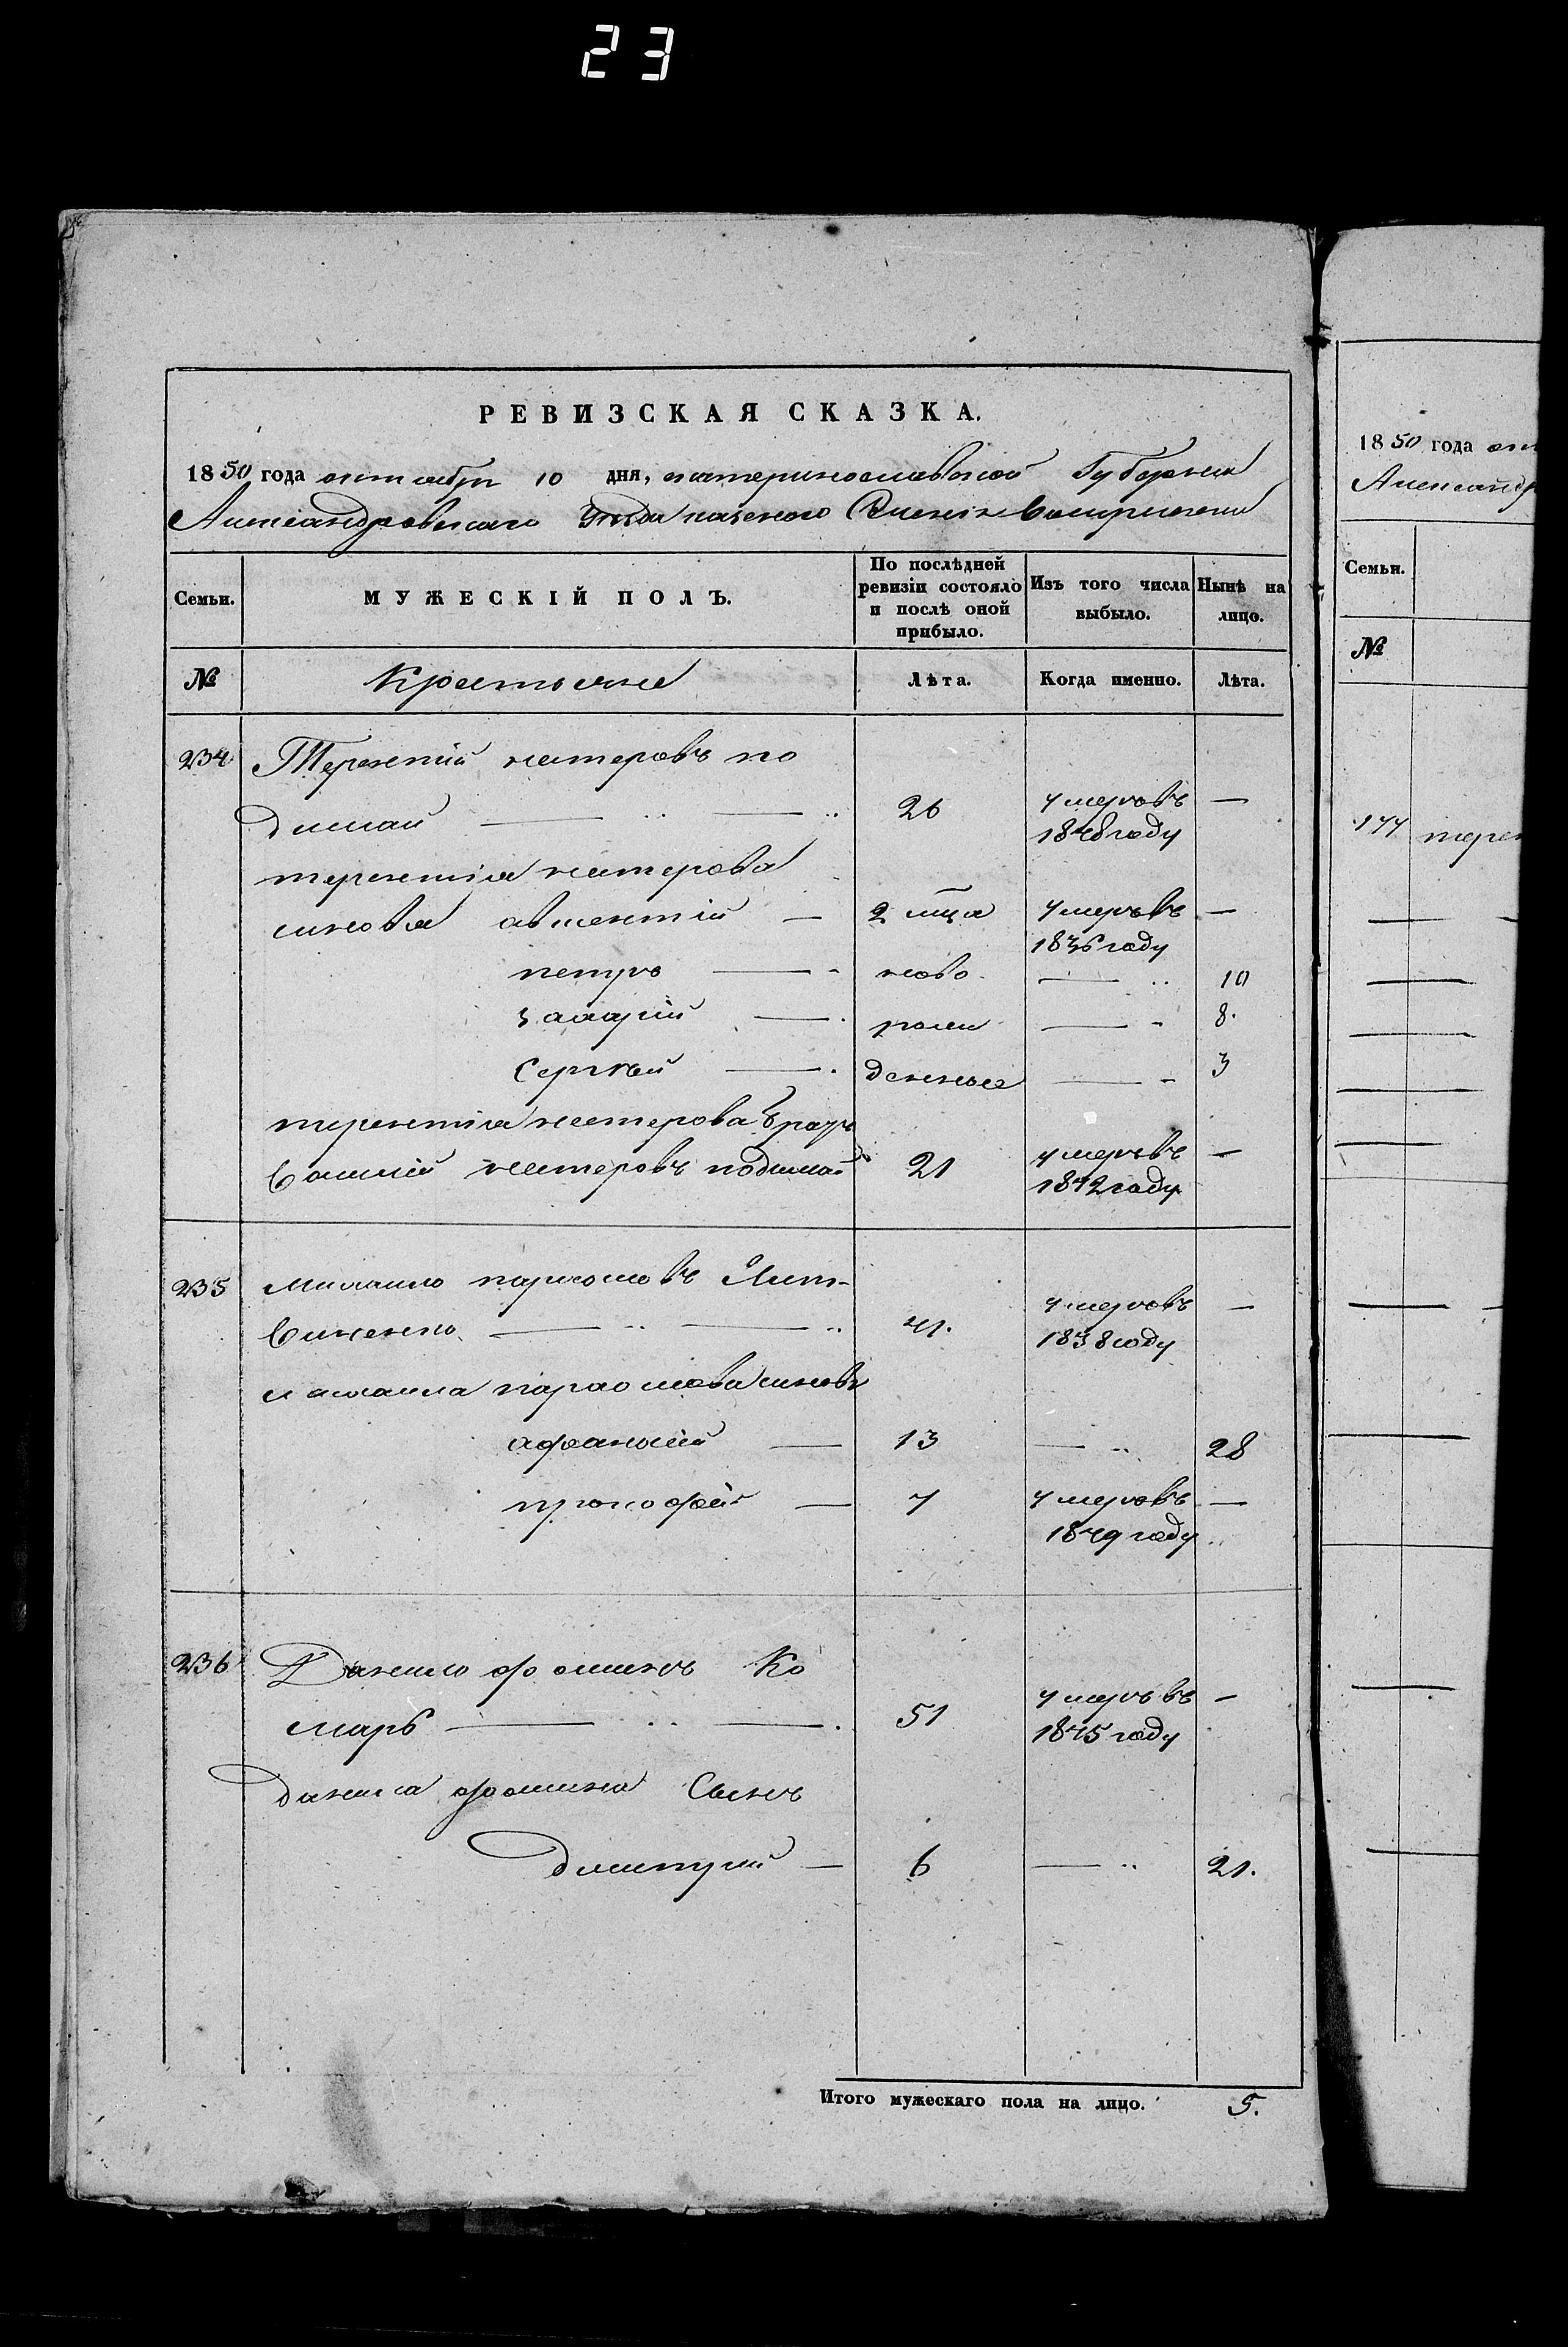 23
РЕВИЗСКАЯ СКАЗКА.
1850 года октября 10 дня, екатеринославской Губернии
Александровскаго Уезда казеного Селения
Семьи. МУЖЕСКІЙ ПОЛЪ. По послѣдней ревизіи состояло и послѣ оной прибыло. Изъ того числа выбыло. Нынѣ на лицо.
№ Крестьяне Лѣта. Когда именно. Лѣта.
234 Терентий нестеровъ по
димай — 26 умеръ въ 1848 году —
терентия нестерова
синовя авксентій — 2 мца умеръ въ 1836 году —
петръ — ново — 10
захарій — рожи — 8.
Сергѣй — денные — 3
терентия нестерова братъ
василий нестеровъ подимай 21 умеръ въ 1842 году —
235 михаило пархомовъ Лит-
виненко — 41. умеръ въ 1838 году —
михаила пархомова синовя
афанасий — 13 — 28
прокофей — 7 умеръ въ 1849 году —
236 Данило фоминъ Ко
маръ — 51 умеръ въ 1845 году —
данила фомина Сынъ
дмитрий — 6 — 21.
Итого мужескаго пола на лицо. 5.
1850 года окт
Александр
Семьи.
№
177 терен